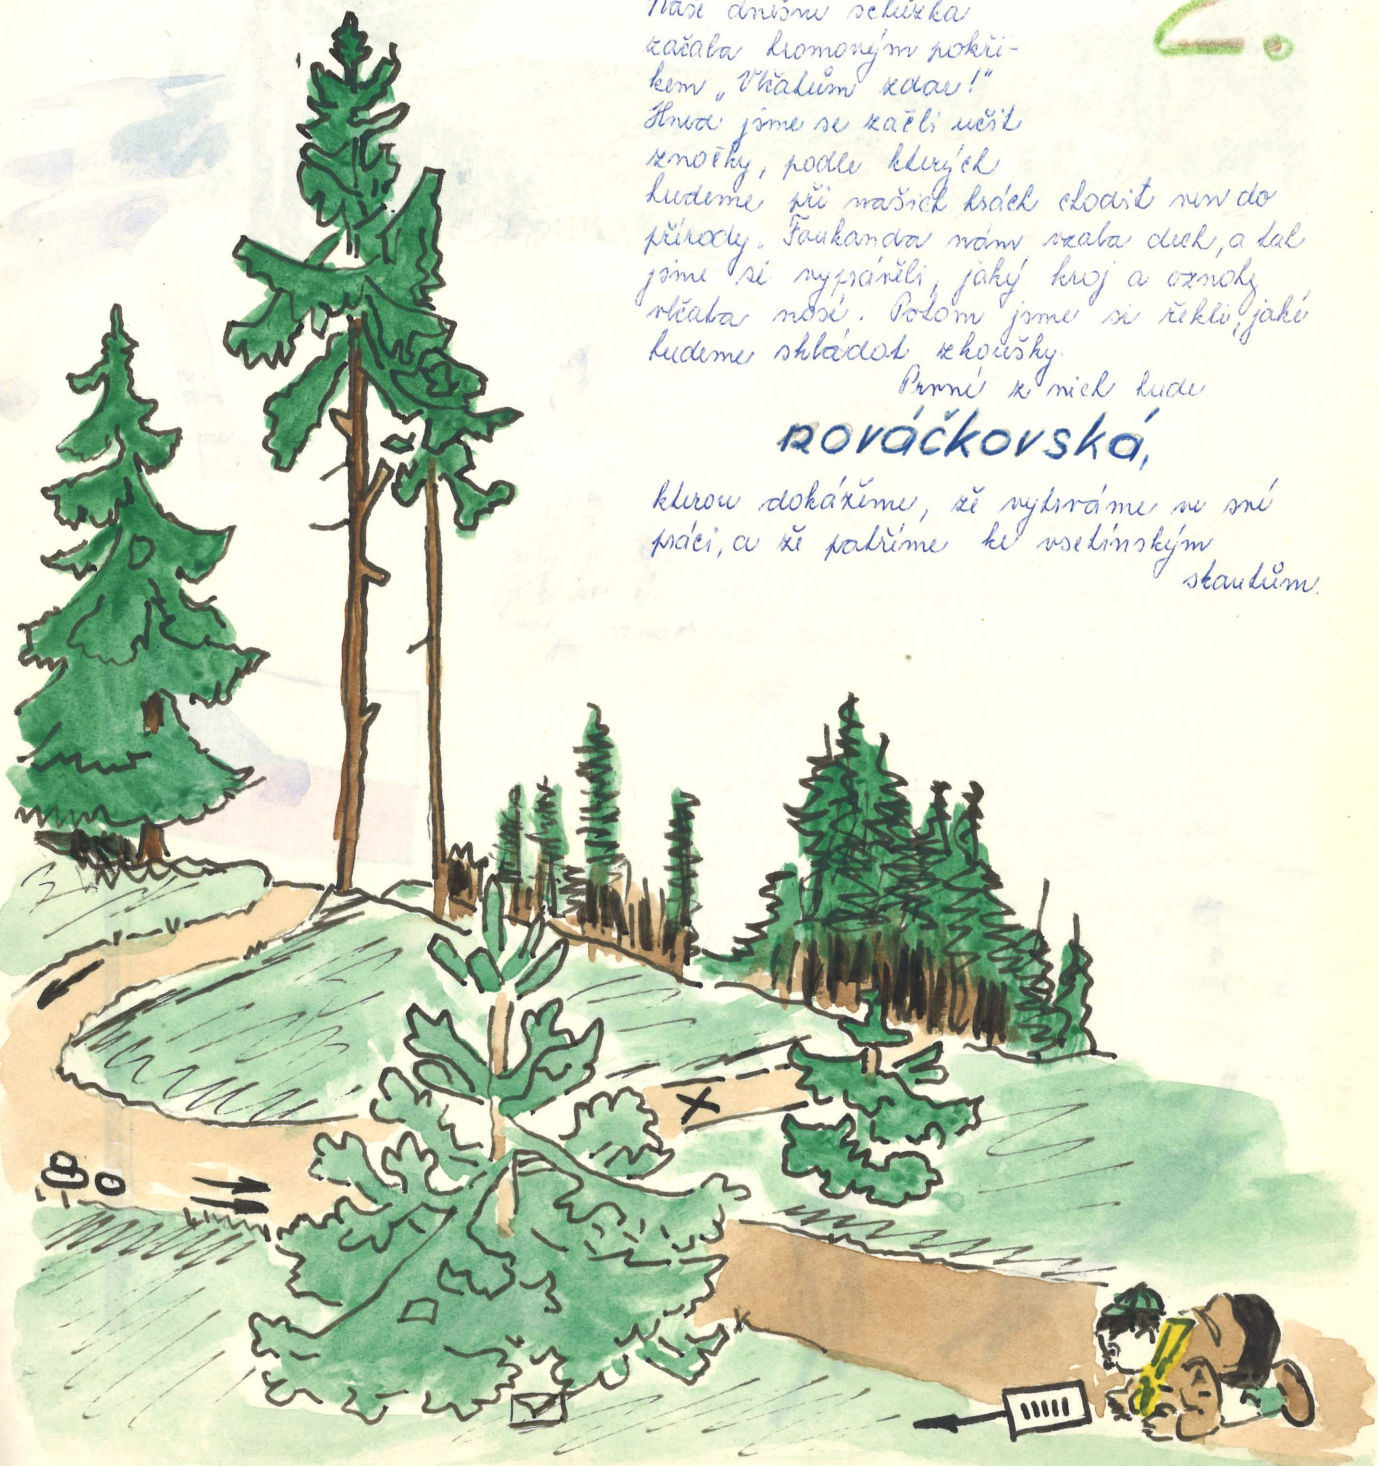 Naše dnešní schůzka
2.
začala hromovým pokři-
kem „Vlčatům zdar!"
Hned jsme se začli učit
značky, podle kterých
budeme při našich hrách chodit ven do
přírody. Foukanda nám vzala dech, a tak
jsme si vyprávěli, jaký kroj a oznaky
vlčata nosí. Potom jsme si řekli, jaké
budeme skládat zkoušky.
První z nich bude
nováčkovská,
kterou dokážeme, že vytrváme ve své
práci, a že patříme ke vsetínským
skautům.